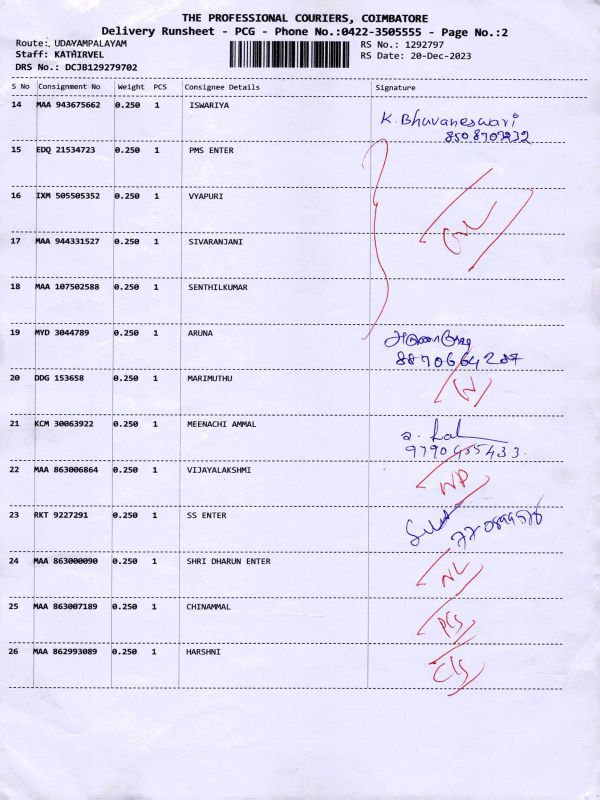 THE PROFESSIONAL COURIERS, COIMBATORE
Delivery Runsheet - PCG - Phone No.:0422-3505555 - Page No.:2
Route: UDAYAMPALAYAM
RS No.: 1292797
Staff: KATHIRVEL
RS Date: 20-Dec-2023
DRS No.: DCJB129279702
S No Consignment No Weight PCS Consignee Details Signature
14 MAA 943675662 0.250 1 ISWARIYA
K. Bhuvaneswari
15 EDQ 21534723 0.250 1 PMS ENTER
16 IXM 505505352 0.250 1 VYAPURI
17 MAA 944331527 0.250 1 SIVARANJANI
18 MAA 107502588 0.250 1 SENTHILKUMAR
19 MYD 3044789 0.250 1 ARUNA
8870664287
20 DDG 153658 0.250 1 MARIMUTHU
21 KCM 30063922 0.250 1 MEENACHI AMMAL
9790455433
22 MAA 863006864 0.250 1 VIJAYALAKSHMI NP
23 RKT 9227291 0.250 1 SS ENTER
24 MAA 863000090 0.250 1 SHRI DHARUN ENTER NL
25 MAA 863007189 0.250 1 CHINAMMAL
26 MAA 862993089 0.250 1 HARSHNI